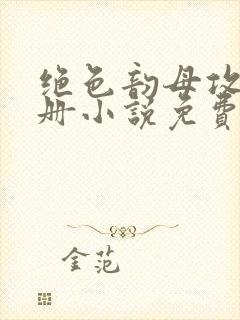 绝色韵母攻
册小说免费
金范